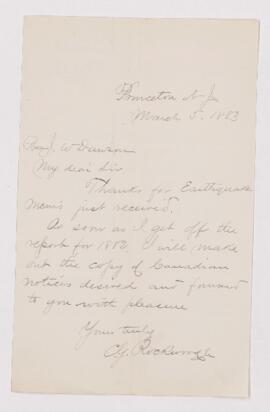 Princeton N. J.
March 5, 1883
J. W. Dawson
My dear Sir
Thanks for Earthquake
mem's just received.
As soon as I get off the
report for 1882, I will make
out the copy of Canadian
notices desired and forward
to you with pleasure
Yours truly
C. G. Rockwood Jr